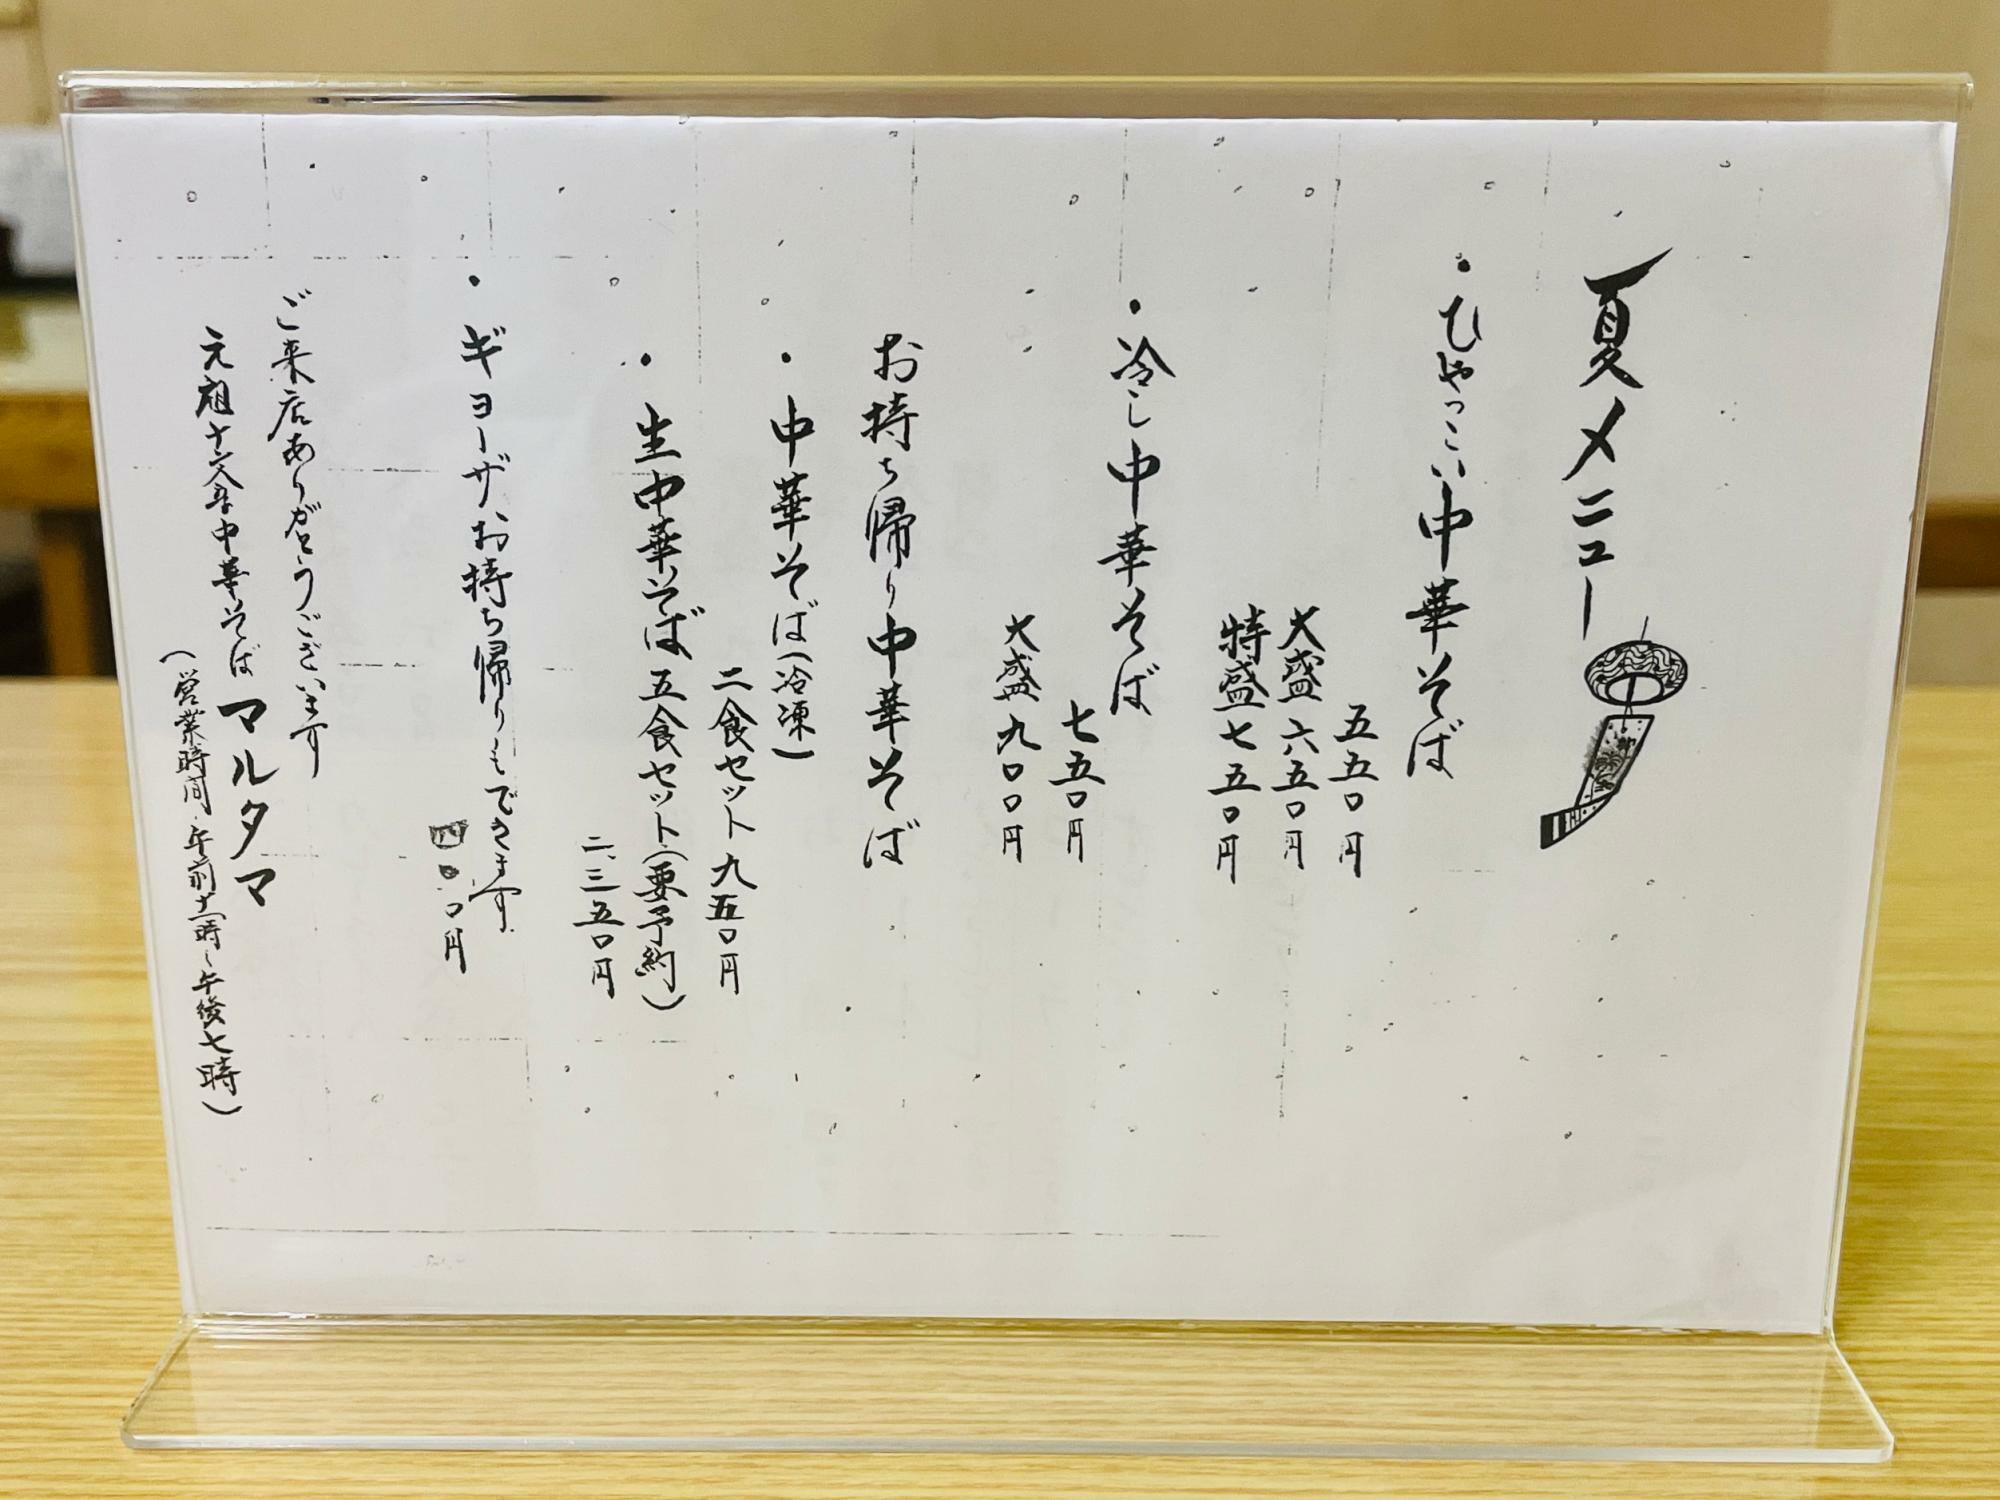 夏メニュー
・ひやっこい中華そば
五五〇円
大盛六五〇円
特盛七五〇円
・冷し中華そば
七五〇円
大盛九〇〇円
お持ち帰り中華そば
・中華そば(冷凍)
二食セット九五〇円
・生中華そば五食セット(要予約)
二、三五〇円
・ギョーザ、お持ち帰りもできます
四〇〇円
ご来店ありがとうございます
元祖十文字中華そば マルタマ
(営業時間・午前十一時〜午後七時)